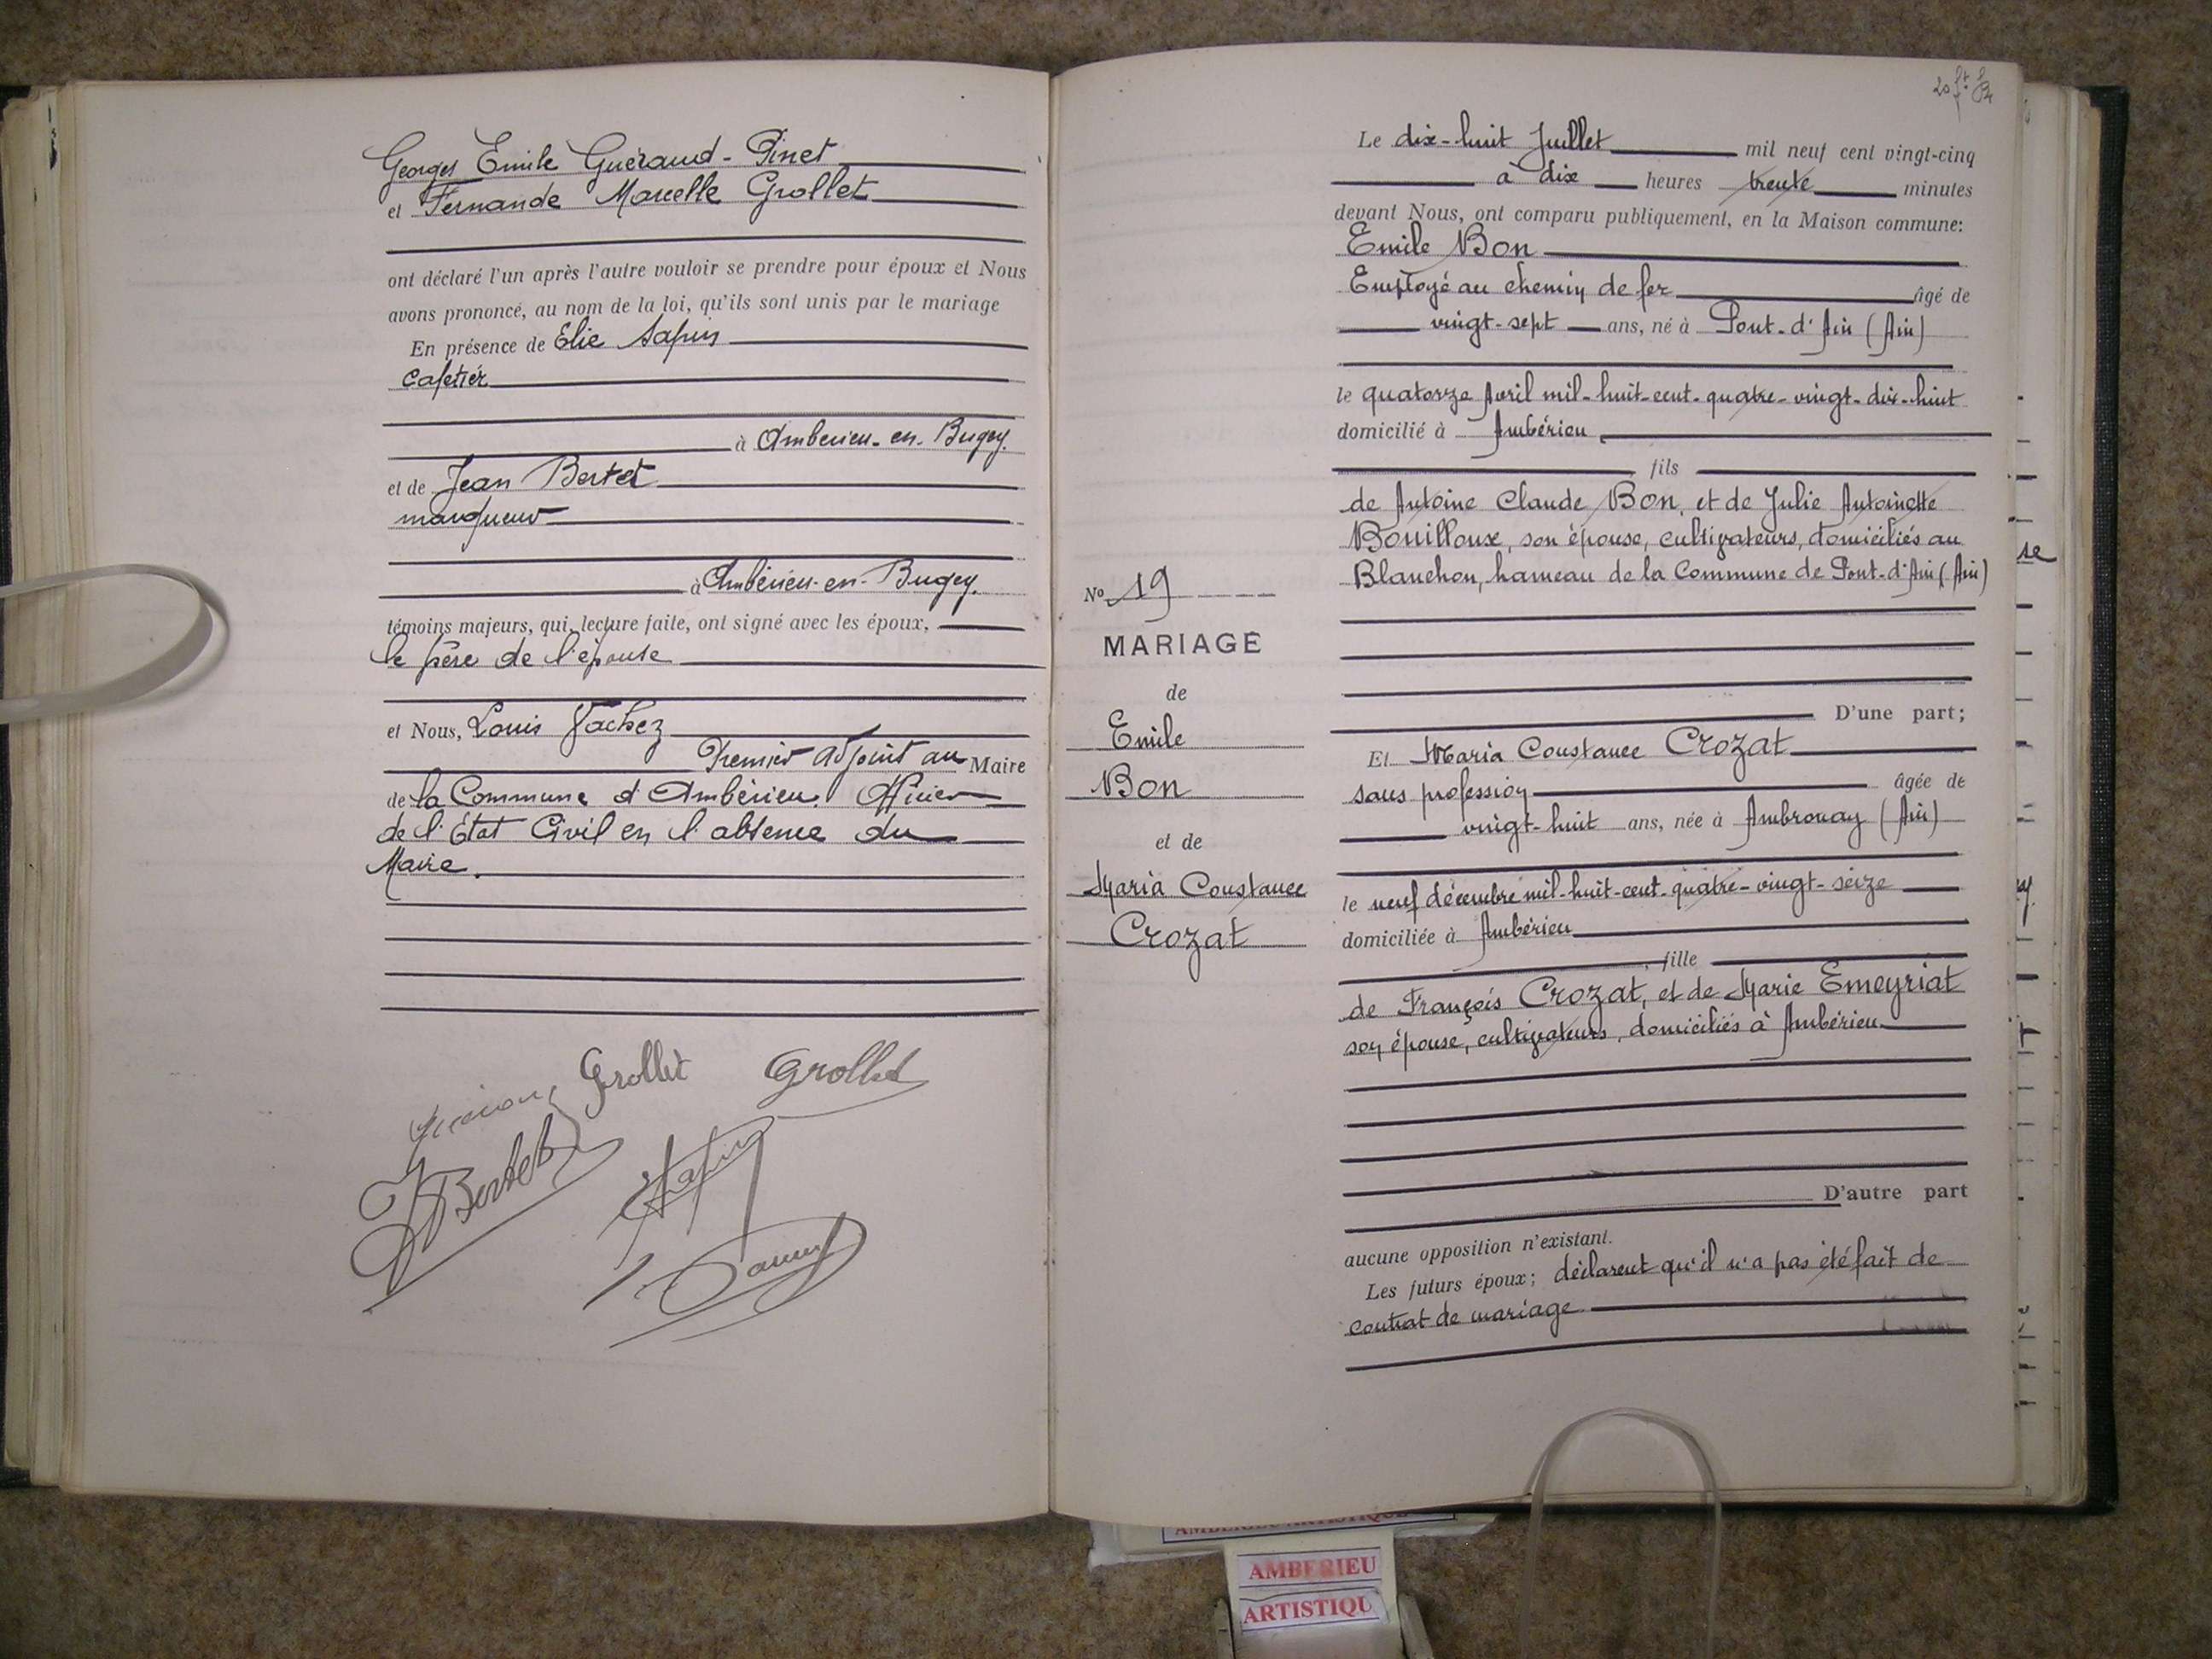 Georges Emile Gueraud-Pinet
et Fernande Marcelle Grollet
ont déclaré l'un après l'autre vouloir se prendre pour époux et Nous
avons prononcé, au nom de la loi, qu'ils sont unis par le mariage
En présence de Elie Sapin
Cafetier
à Amberieu-en-Bugey.
et de Jean Bertet
manqueur
à Ambérieu-en-Bugey.
témoins majeurs, qui, lecture faite, ont signé avec les époux,
le père de l'épouse
et Nous, Louis Vachez
Premier Adjoint au Maire
de la Commune d'Ambérieu. Officier
de l'Etat Civil en l'absence du
Maire.
Grollet Grollet
JBertet
ESapin
20 ft.
Le dix-huit Juillet mil neuf cent vingt-cinq
à dix heures trente minutes
devant Nous, ont comparu publiquement, en la Maison commune:
Emile Bon
Employé au chemin de fer âgé de
vingt-sept ans, né à Pont-d'Ain (Ain)
le quatorze Avril mil-huit-cent-quatre-vingt-dix-huit
domicilié à Ambérieu
fils
de Antoine Claude Bon, et de Julie Antoinette
Bouilloux, son épouse, cultivateurs, domiciliés au
Blanchon, hameau de la Commune de Pont-d'Ain (Ain)
D'une part;
Et Maria Constance Crozat
sans profession âgée de
vingt-huit ans, née à Ambronay (Ain)
le neuf décembre mil-huit-cent-quatre-vingt-seize
domiciliée à Ambérieu
fille
de François Crozat, et de Marie Emeyriat
son épouse, cultivateurs, domiciliés à Ambérieu
D'autre part
aucune opposition n'existant.
Les futurs époux; déclarent qu'il n'a pas été fait de
contrat de mariage
No 19
MARIAGE
de
Emile
Bon
et de
Maria Constance
Crozat
AMBERIEU
ARTISTIQU